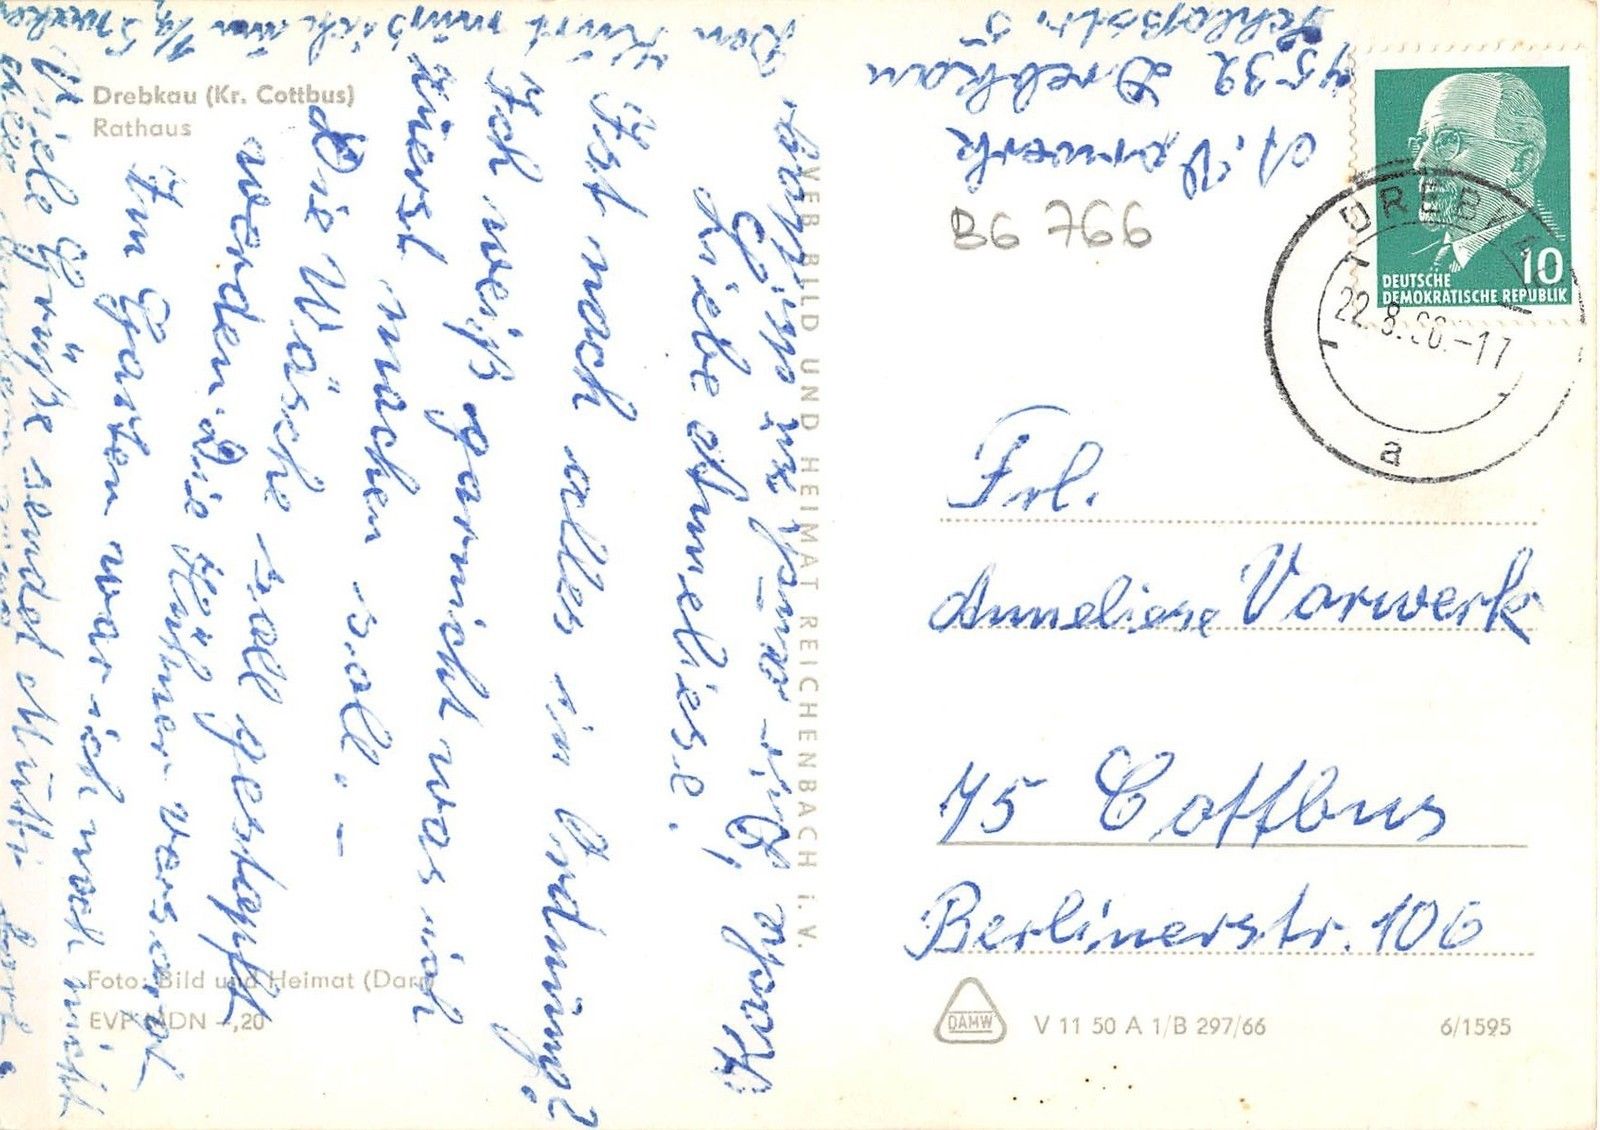 Drebkau (Kr. Cottbus)
Rathaus
VEB BILD UND HEIMAT REICHENBACH i. V.
Foto: Bild und Heimat (Darr)
EVP MDN -,20
A. Vorwerk
7532 Drebkau
Schloßstr. 5
B6 766
DEUTSCHE
DEMOKRATISCHE REPUBLIK
10
DREBKAU
22.8.66.-17
a
Frl.
Anneliese Vorwerk
75 Cottbus
Berlinerstr. 106
DAMW
V 11 50 A 1/B 297/66
6/1595
Liebe Anneliese.
Ist noch alles in Ordnung?
Ich weiß garnicht was ich
zuerst machen soll. -
Die Wäsche soll gestopft
werden. Die Hühner versorgt
Im Garten war ich noch nicht
Viele Grüße sendet Mutti